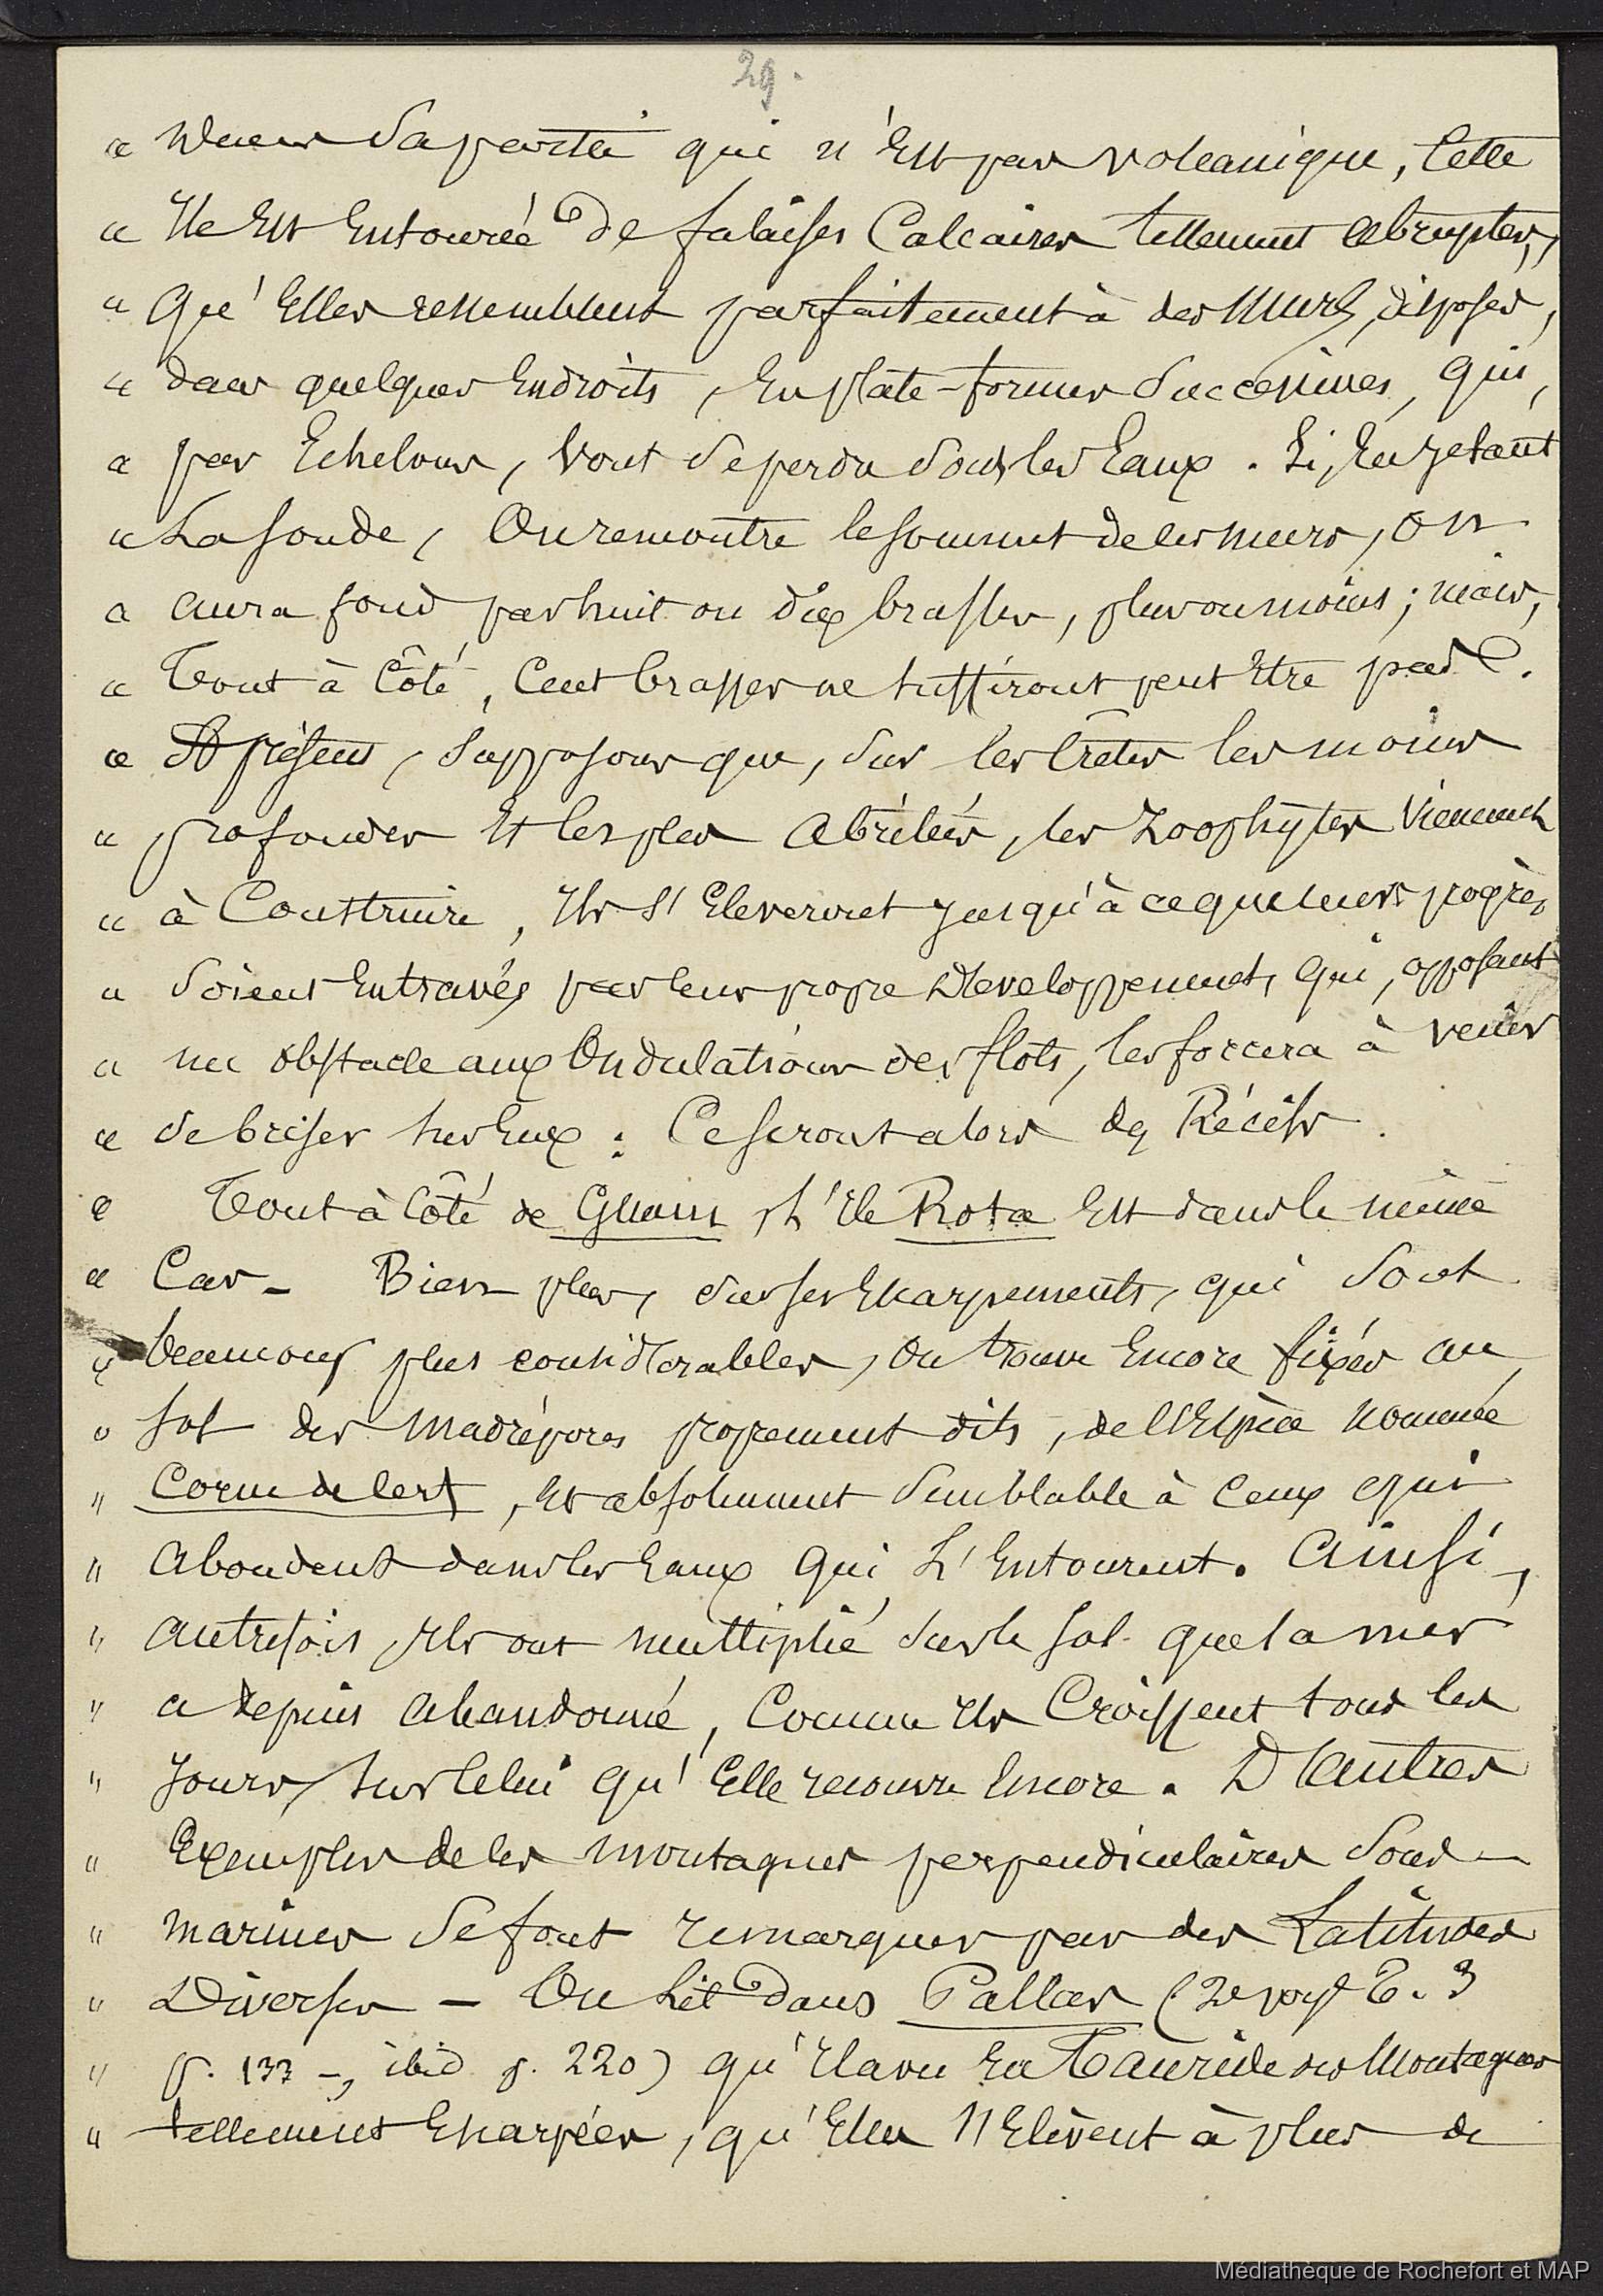 29.
" Dans sa partie qui n'Est pas volcanique, Cette
" Ile Est Entourée de falaises Calcaires tellement Abruptes,
" Qu'Elles ressemblent parfaitement à des Murs, disposés,
" dans quelques Endroits, En plate-formes successives, qui,
" par Echelons, Vont se perdre sous les Eaux. Si, En jetant
" La sonde, On rencontre le sommet de ces murs, on
" aura fond par huit ou dix brasses, plus ou moins ; mais,
" Tout à Côté, Cent brasses ne suffiront peut Etre pas.
" A présent, supposons que, sur les Crêtes les moins
" profondes Et les plus Abritées, les Zoophytes viennent
" à Construire, Ils s'Eleveront jusqu'à ce que leurs progrès
" soient Entravés par leur propre Développement, Qui, opposant
" un obstacle aux Ondulations des flots, les forcera à venir
" se briser sur Eux : Ce seront alors des Récifs.
" Tout à Côté de Guam, L'Ile Rota Est dans le même
" Cas - Bien plus, sur ses Escarpements, qui sont
" beaucoup plus considérables, On trouve Encore fixés au
" sol des madrépores proprement dits, de l'Espèce nommée
" Corne de Cerf, Et absolument semblable à Ceux qui
" Abondent dans les Eaux qui L'Entourent. Ainsi,
" autrefois, Ils ont multiplié sur le sol que la mer
" a depuis Abandonné, Comme Ils Croissent tous les
" Jours, sur Celui qu'Elle recouvre Encore. D'autres
" Exemples de ces montagnes perpendiculaires sous-
" marines se font remarquer par des Latitudes
" Diverses - On Lit dans Pallas (2e voy. T. 3
" p. 137 -, ibid p. 220) qu'Il a vu En Tauride des Montagnes
" tellement Escarpées, qu'Elles s'Elèvent à plus de
Médiathèque de Rochefort et MAP